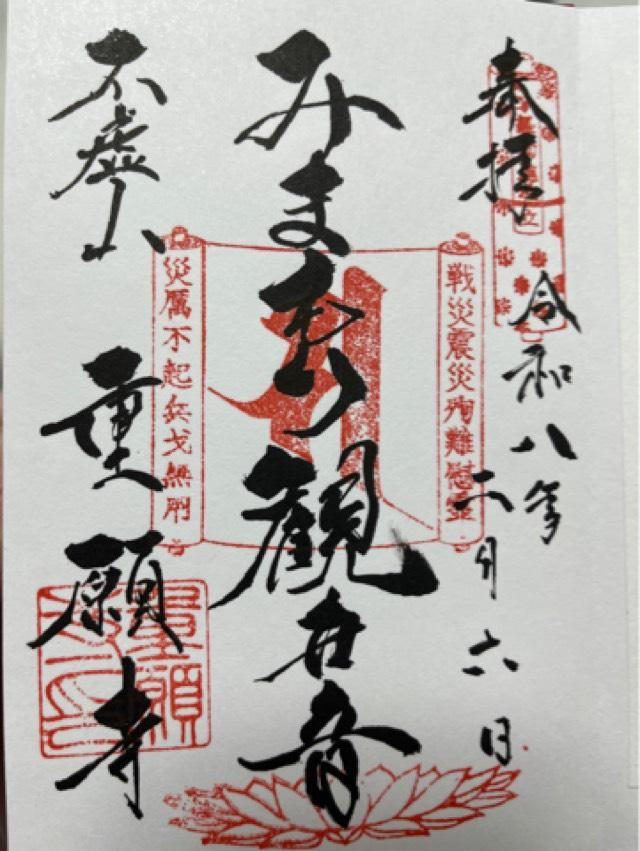 奉拝
令和八年
二月六日
戦災震災殉難慰霊
みまもり観世音
災厲不起兵戈無用
不虚山 重願寺
重願
寺印